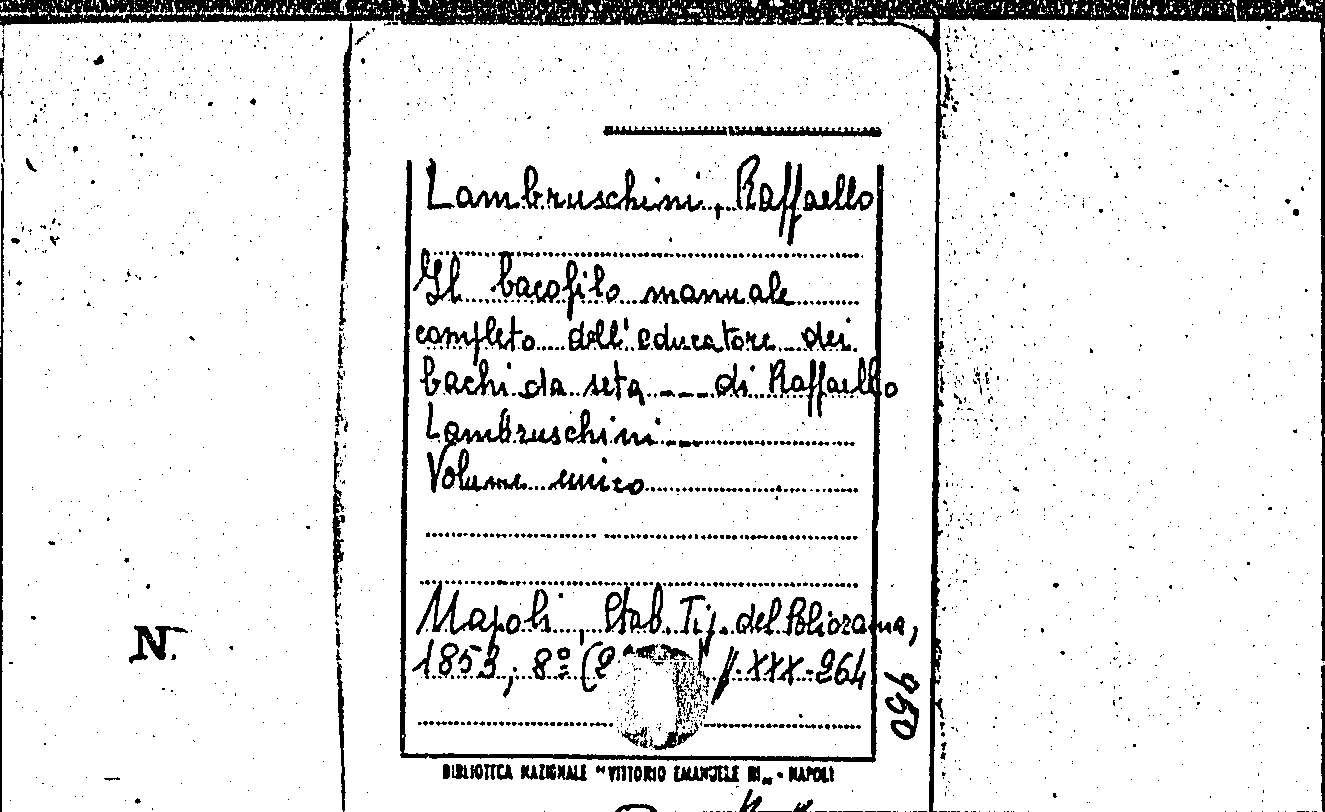 Lambruschini, Raffaello
Il bacofilo manuale
completo dell'educatore dei
bachi da seta --- di Raffaello
Lambruschini ---
Volume unico
Napoli, Stab. Tip. del Poliorama,
1853, 8º (2 p. XXX-264
950
N.
BIBLIOTECA NAZIONALE "VITTORIO EMANUELE III" - NAPOLI